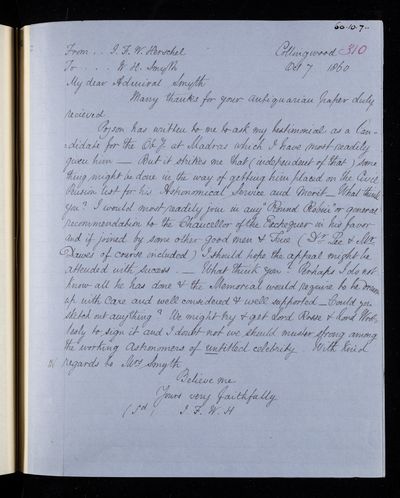 60.10.7
From .. J. F. W. Herschel Collingwood 310
To .... W. H. Smyth Oct 7 1860
My dear Admiral Smyth
Many thanks for your antiquarian paper duly
recieved
Pogson has written to me to ask my testimonial as a Can-
didate for the Obsy at Madras which I have most readily
given him — But it strikes me that (independent of that) some
thing might be done in the way of getting him placed on the Civil
Pension list for his Astronomical Service and Merit — What think
you? I would most readily join in any "Round Robin" or general
recommendation to the Chancellor of the Exchequer in his favor
and if joined by some other good men & True (Dr Lee & Mr
Dawes of course included) I should hope the appeal might be
attended with success. — What think you? Perhaps I do not
know all he has done & the Memorial would require to be drawn
up with care and well considered & well supported — Could you
sketch out anything? We might try & get Lord Rosse & Lord Wrot-
tesly to sign it and I doubt not we should muster strong among
the working Astronomers of untitled celebrity. With kind
regards to Mrs Smyth
Believe me
Yours very faithfully
(sd) J. F. W. H